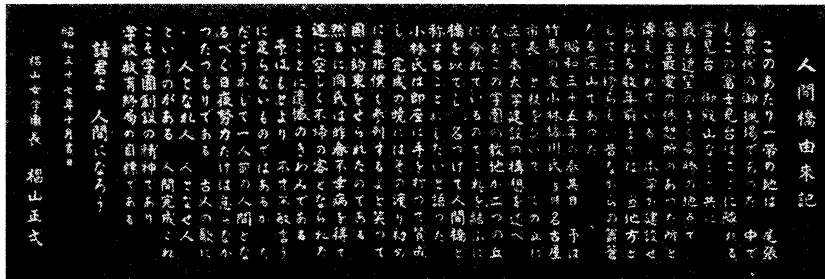 人間橋由来記
このあたり一帯の地は 尾張
藩累代の御猟場であった 中で
もこの富士見台はここに隣れる
雪見台 御殿山などと共に
最も遠望のきく景勝の地点で
藩主最愛の休憩所のあった所と
傳えられている 本学が建設せ
られる数年前までは 当地方と
しては珍らしい昔ながらの蒼蒼
たる深山であった
昭和三十五年の春某日 予は
竹馬の友小林橘川氏 名古屋
市長 と杖をひいて この丘に
立ち本大学建設の構想を述べ
なおこの学園の敷地が二つの丘
に分れているので これを結ぶに
橋を以てし 名づけて人間橋と
称することにしたいと語った
小林氏は即座に手を打って賛成
し 完成の暁にはその渡り初め
に是非僕も参列するよと笑って
固い約束をせられたのである
然るに同氏は昨春不幸病を得て
遂に空しく不帰の客となられた
まことに遺憾のきわみである
予はもとより 不才不敏言う
に足らないものではあるが た
だどうかして一人前の人間とな
るべく日夜努力だけは怠らなか
ったつもりである 古人の歌に
人となれ人 人となせ人
というのがある 人間完成これ
こそ学園創設の精神であり
学校教育終局の目標である
諸君よ 人間になろう
昭和三十七年十月吉日
椙山女学園長 椙山正弌